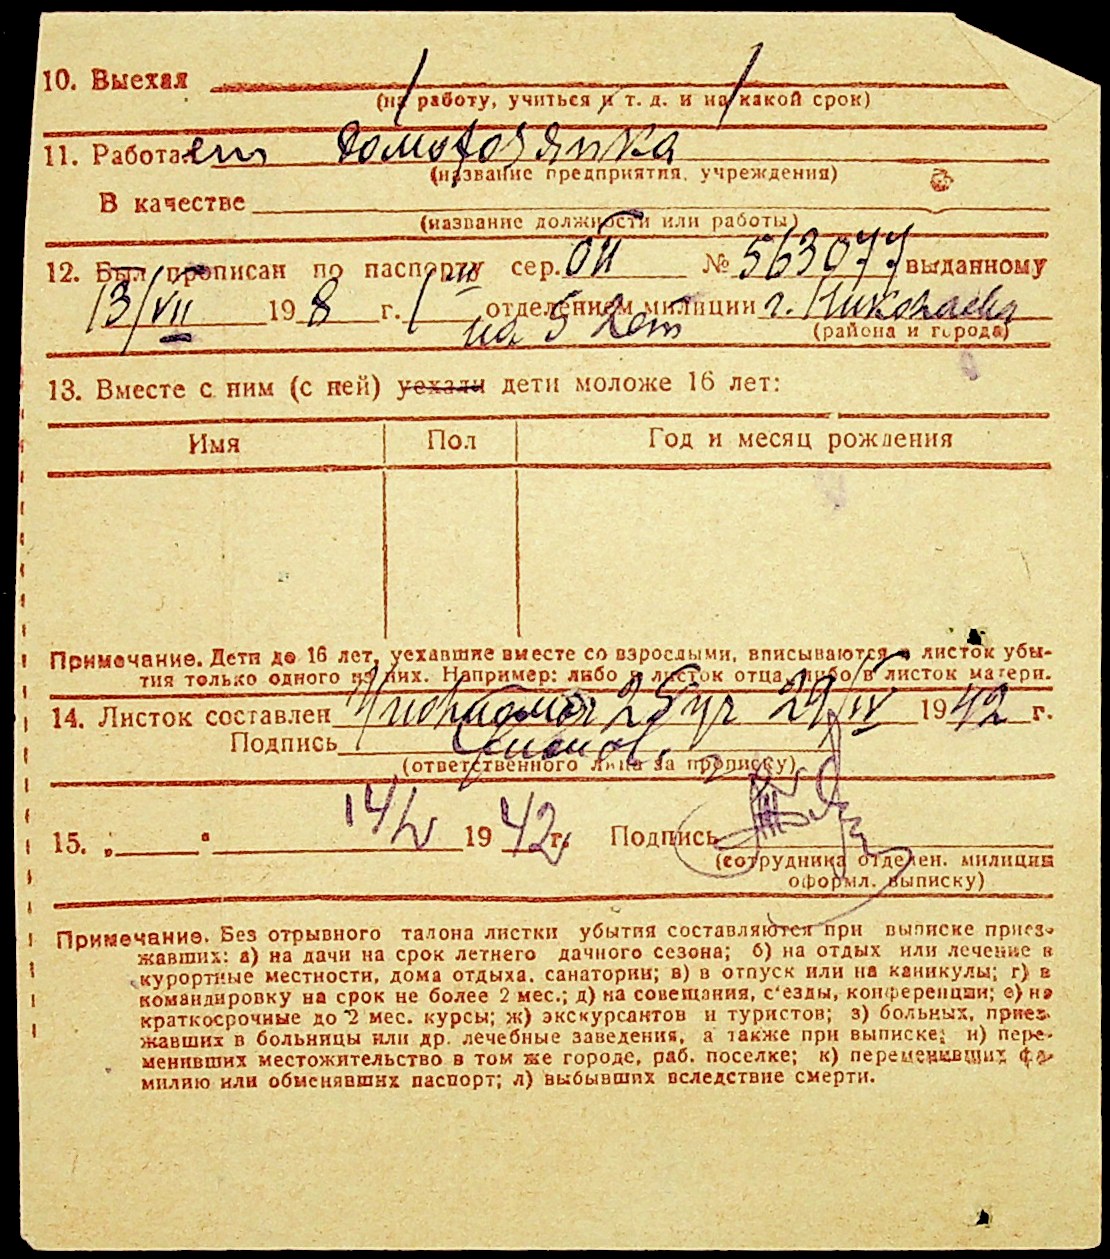 10. Выехал
(на работу, учиться и т. д. и на какой срок)
11. Работает домохозяйка
(название предприятия, учреждения)
В качестве
(название должности или работы)
12. Был прописан по паспорту сер. ОИ № 563077 выданному
13/VII 198 8 г. 1 м отделением милиции г. Николаева
на 5 лет (района и города)
13. Вместе с ним (с ней) уехали дети моложе 16 лет:
Имя Пол Год и месяц рождения
Примечание. Дети до 16 лет, уехавшие вместе со взрослыми, вписываются в листок убы-
тия только одного из них. Например: либо в листок отца, либо в листок матери.
14. Листок составлен 25 уч 29/IV 1942 г.
Подпись
(ответственного лица за прописку)
15. „ “ 14/V 1942 г. Подпись
(сотрудника отделен. милиции
оформл. выписку)
Примечание. Без отрывного талона листки убытия составляются при выписке приез-
жавших: а) на дачи на срок летнего дачного сезона; б) на отдых или лечение в
курортные местности, дома отдыха, санатории; в) в отпуск или на каникулы; г) в
командировку на срок не более 2 мес.; д) на совещания, с'езды, конференции; е) на
краткосрочные до 2 мес. курсы; ж) экскурсантов и туристов; з) больных, приез-
жавших в больницы или др. лечебные заведения, а также при выписке: и) пере-
менивших местожительство в том же городе, раб. поселке; к) переменивших фа-
милию или обменявших паспорт; л) выбывших вследствие смерти.